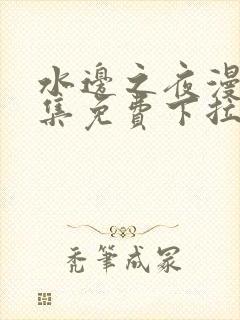 水邊之夜漫
集免費下拉
禿筆成冢